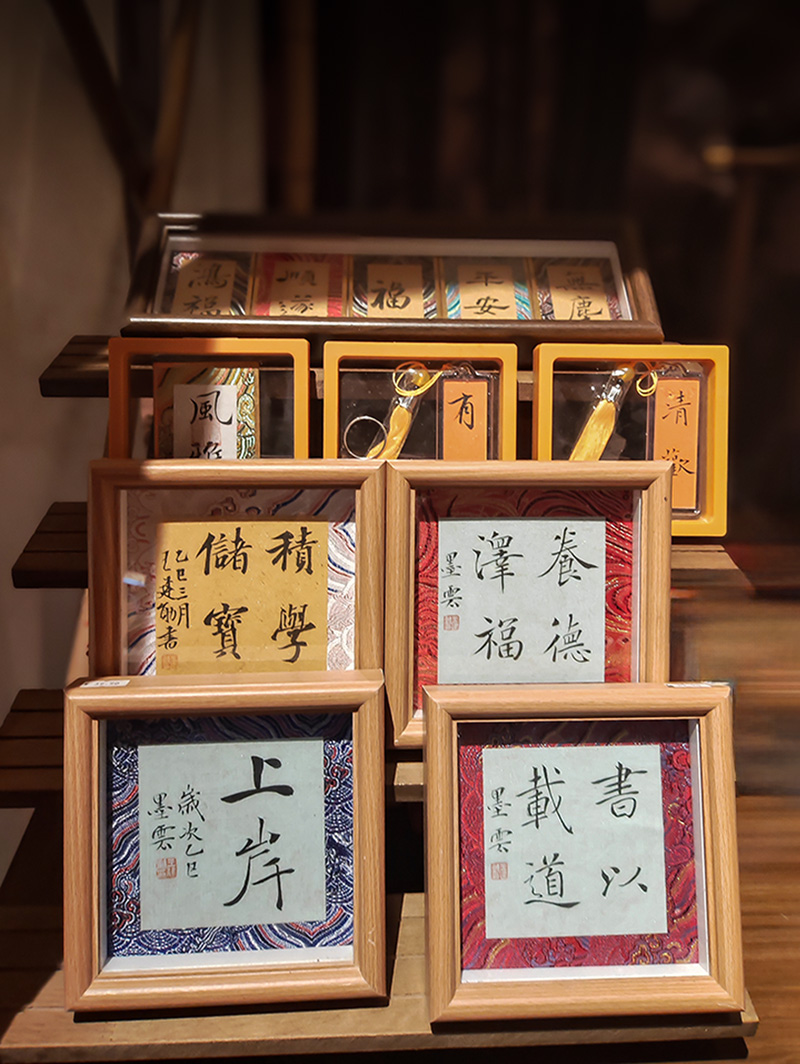 鴻福
順遂
福
平安
無塵
風雅
有
清歡
積學
儲寶
乙巳三月
養德
澤福
墨雲
上岸
歲次乙巳
墨雲
書以
載道
墨雲